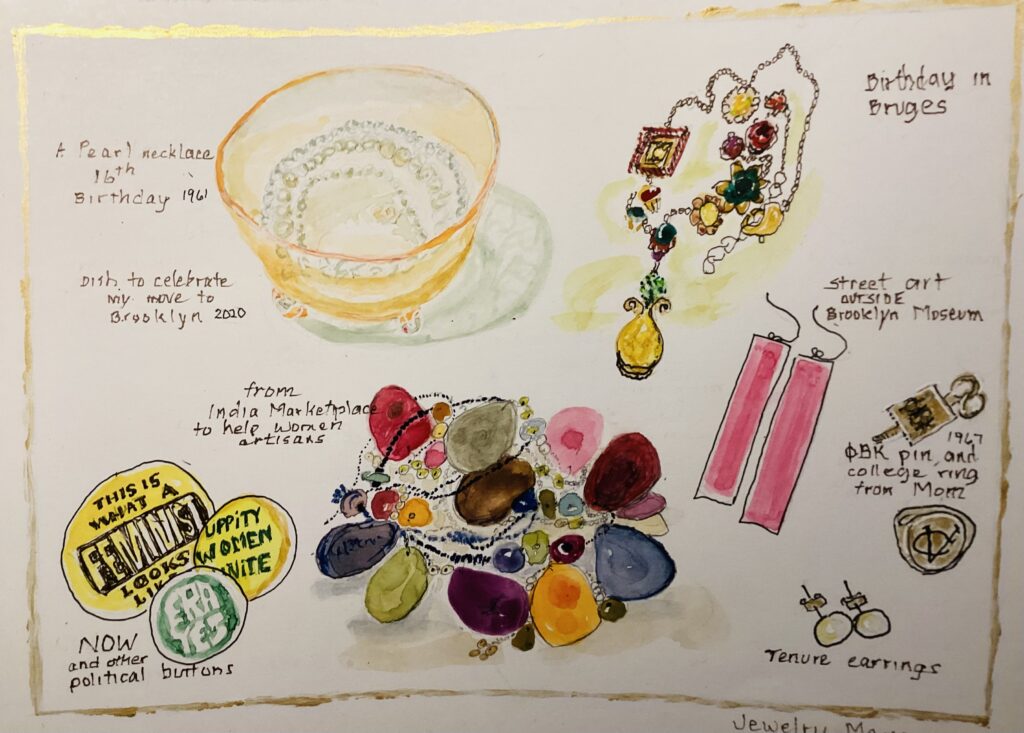 A Pearl necklace
16th
Birthday 1961
Dish to celebrate
my move to
Brooklyn 2020
Birthday in
Bruges
street art
OUTSIDE
Brooklyn Moseum
from
India Marketplace
to help women
artisans
1967
ΦBK pin, and
college ring
from Mom
THIS IS
WHAT A
FEMINIST
LOOKS
UPPITY
WOMEN
ERA
YES
NOW
and other
political buttons
Tenure earrings
Jewelry